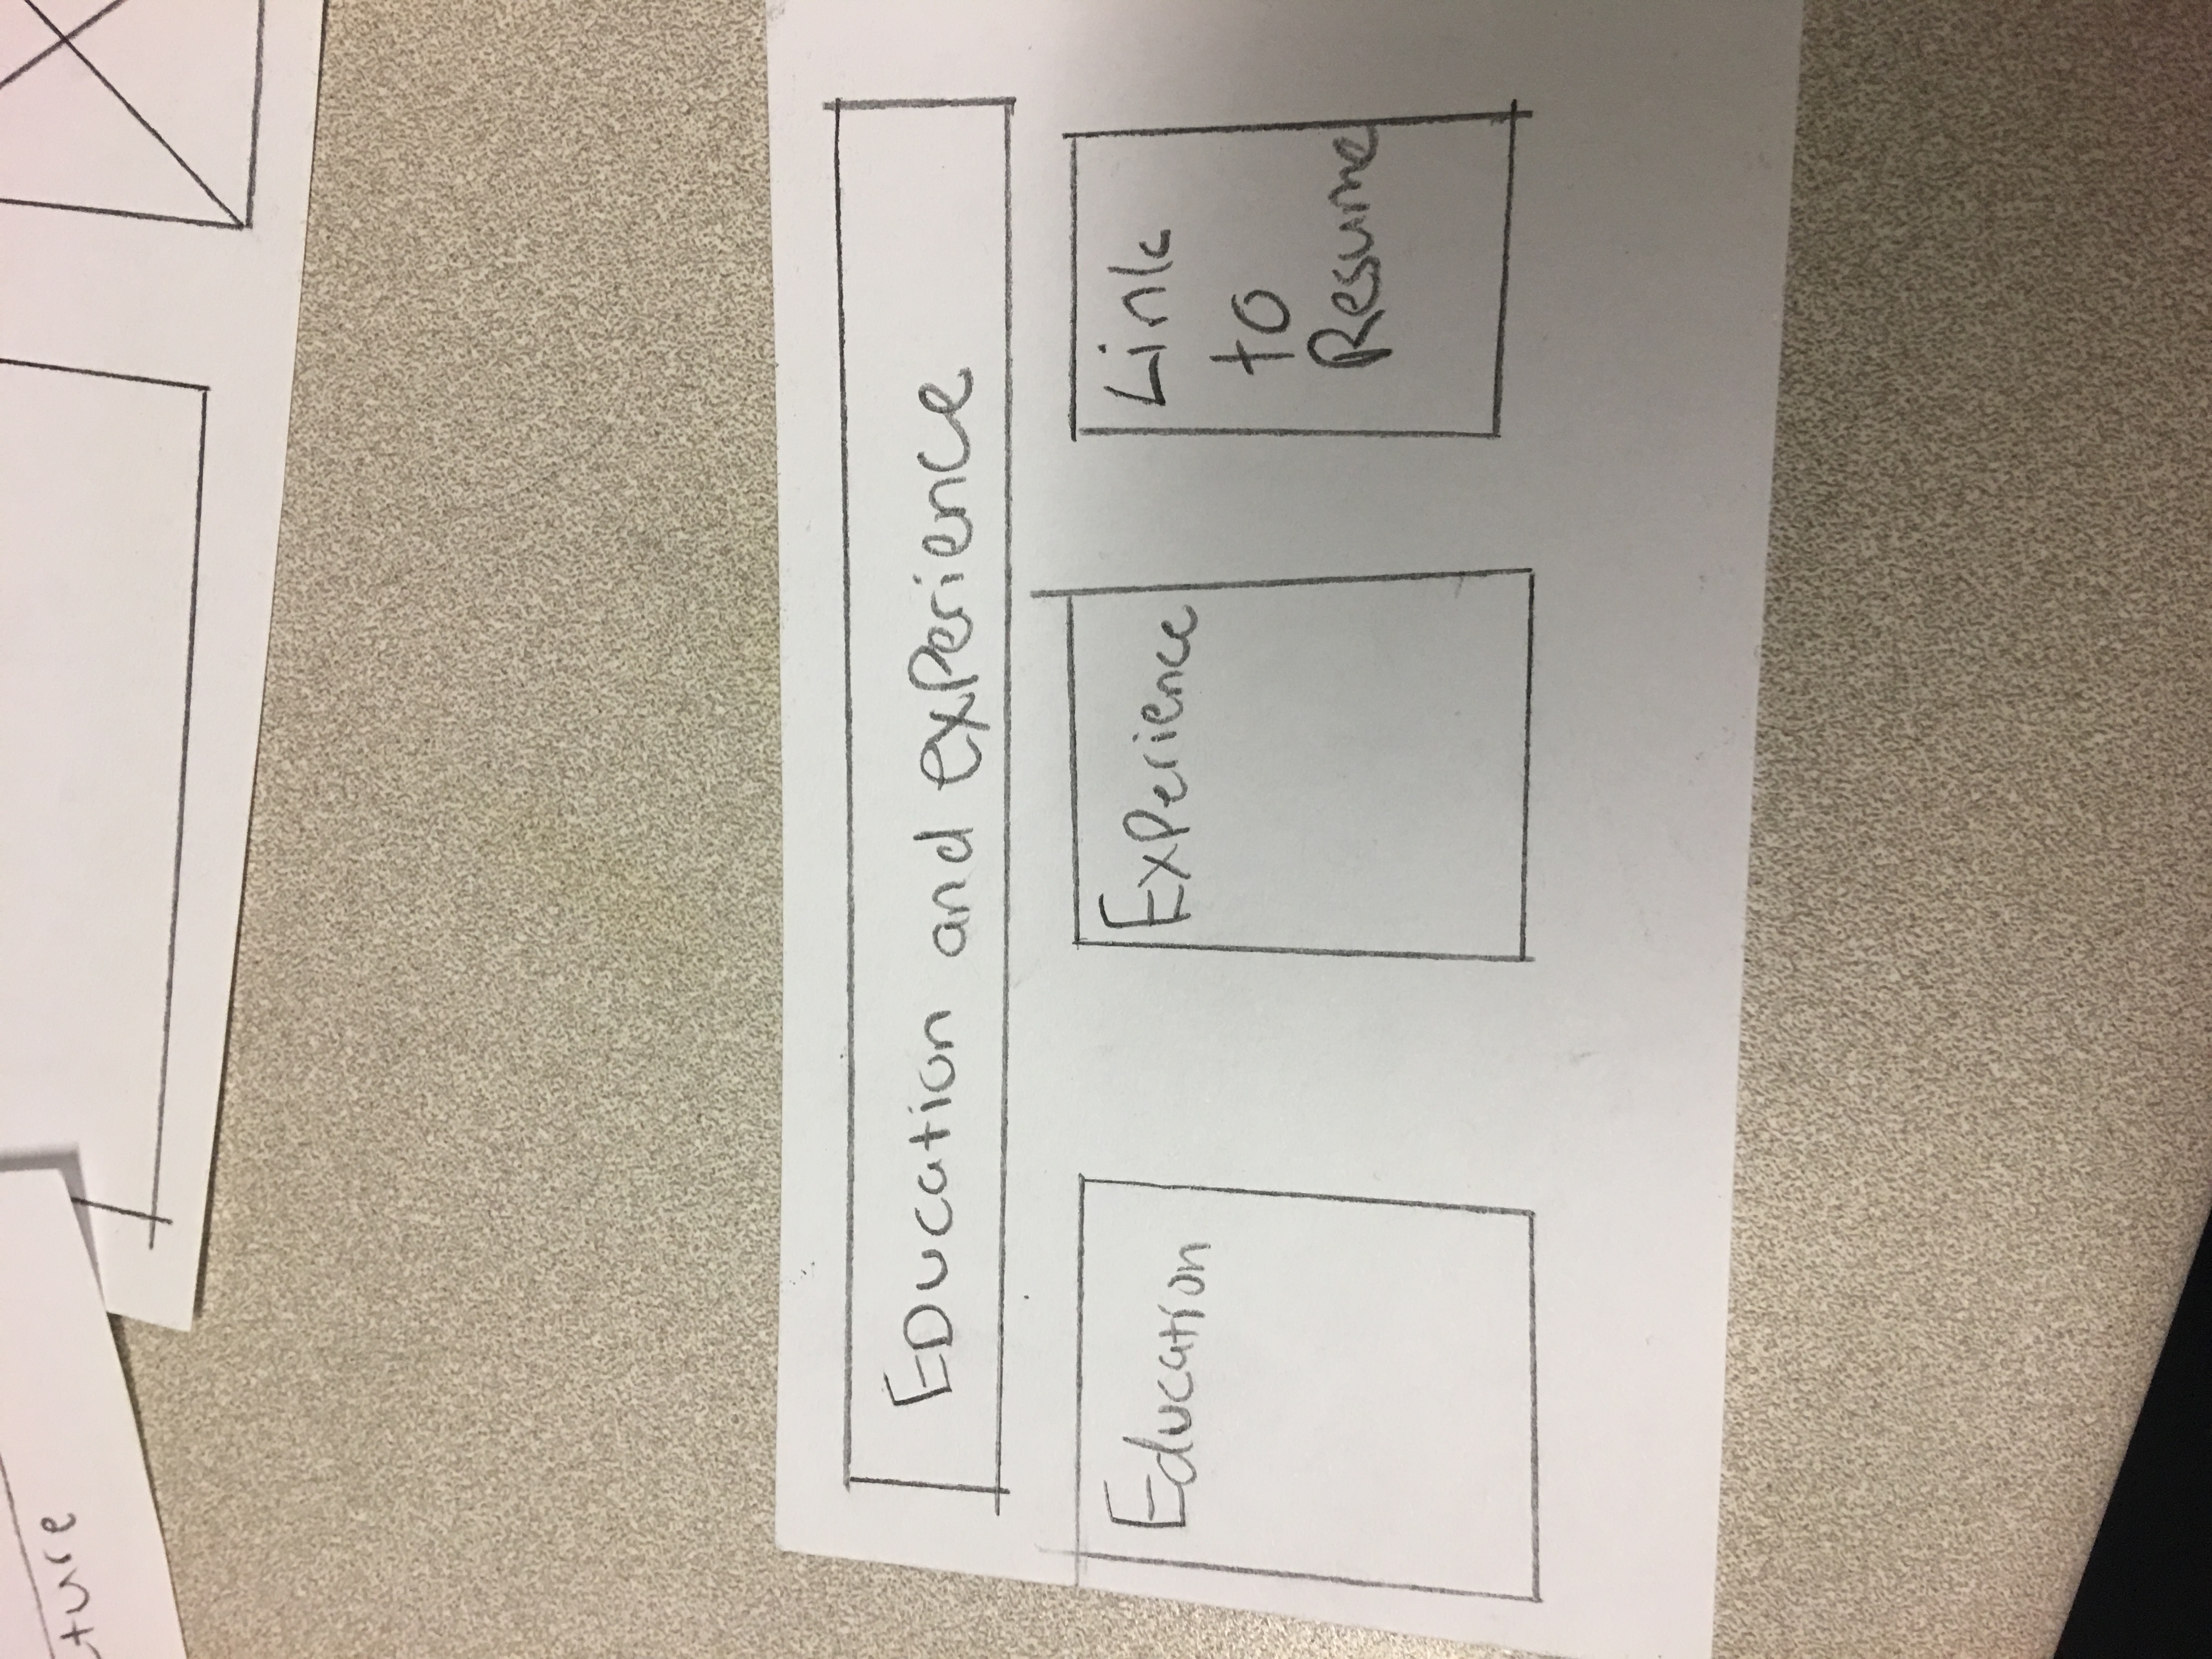 EDucation and exPerience
Education
ExPerience
Link
to
Resume